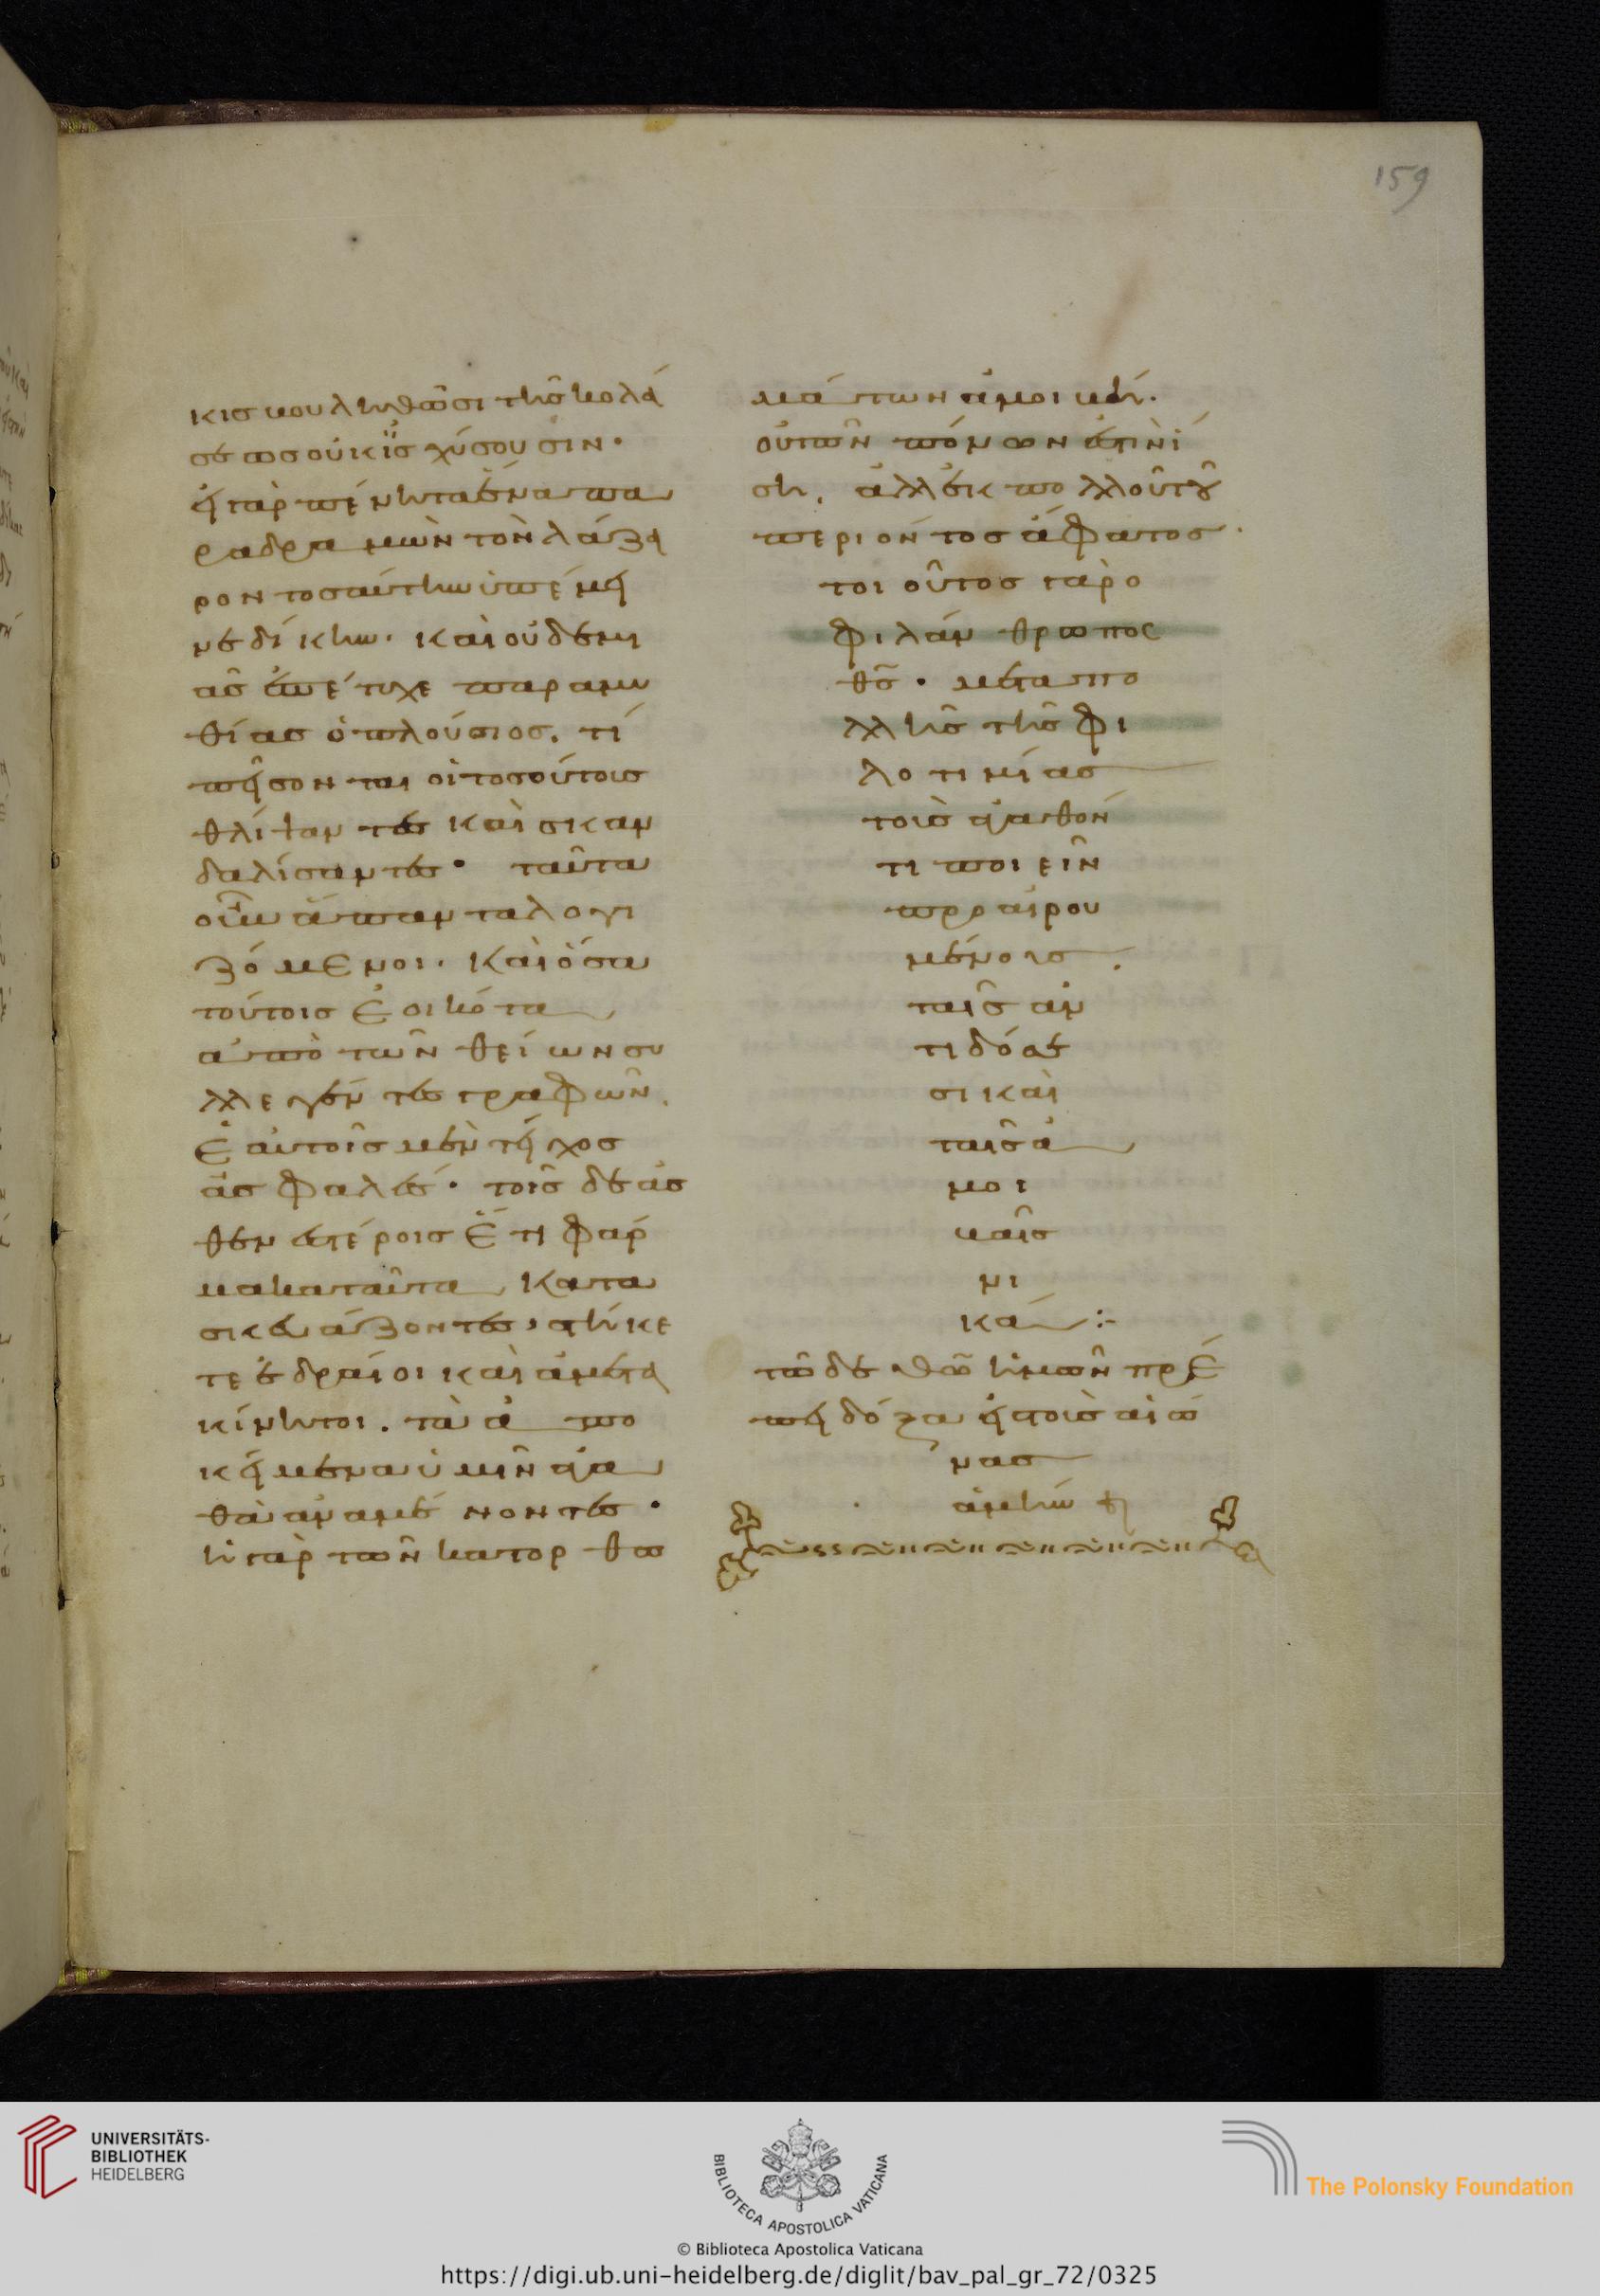 159
κις βουληθῶσι τῆς κολά
σεως οὐκ ἰσχύσουσιν·
εἰ γὰρ πένητα ἕνα πα
ραδραμὼν τὸν λάζα
ρον τοσαύτην ὑπέμει
νε δίκην· καὶ οὐδεμι
ᾶς ἐπέτυχε παραμυ
θίας ὁ πλούσιος. τί
πείσονται οἱ τοσούτους
θλίψαντες καὶ σκαν
δαλίσαντες· ταῦτα
οὖν ἅπαντα λογι
ζόμενοι· καὶ ὅσα
τούτοις ἐοικότα
ἀπὸ τῶν θείων συ
λλεγέντες γραφῶν.
ἑαυτοῖς μὲν τεῖχος
ἀσφαλές· τοῖς δὲ ἀσ
θενεστέροις ἔτι φάρ
μακα ταῦτα κατα
σκευάζοντες, στήκε
τε ἑδραῖοι καὶ ἀμετα
κίνητοι. τὰ ἀπο
κείμενα ὑμῖν ἀγα
θὰ ἀναμένοντες·
ἡ γὰρ τῶν κατορθω
μάτων ἀμοιβή.
οὐ τῶν πόνων ἐστὶν ἴ
ση, ἀλλ' ἐκ πολλοῦ τοῦ
περιόντος ἄφατος·
τοιοῦτος γὰρ ὁ
φιλάνθρωπος
θς· μετὰ πο
λλῆς τῆς φι
λοτιμίας
τοῖς ἀγαθόν
τι ποιεῖν
προαιρου
μένοις.
ταῖς ἀν
τιδόσε
σι καὶ
ταῖς ἀ
μοι
βαῖς
νι
κᾶν:-
τῶ δὲ θῶ ἡμῶν πρέ
πει δόξα εἰς τοὺς αἰῶ
νας
ἀμήν
UNIVERSITÄTS-
BIBLIOTHEK
HEIDELBERG
BIBLIOTECA APOSTOLICA VATICANA
The Polonsky Foundation
© Biblioteca Apostolica Vaticana
https://digi.ub.uni-heidelberg.de/diglit/bav_pal_gr_72/0325